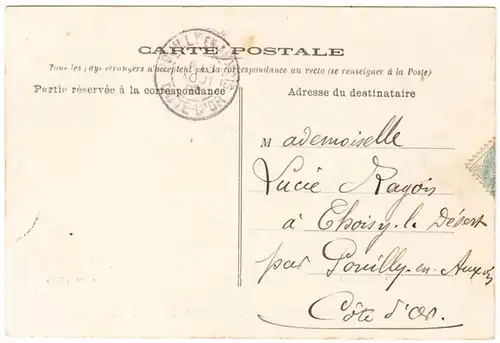 CARTE POSTALE
Tous les pays étrangers n'acceptent pas la correspondance au recto (se renseigner à la Poste)
Partie réservée à la correspondance
Adresse du destinataire
Mademoiselle
Lucie Ragois
à Thoisy-le Désert
par Pouilly-en-Auxois
Côte d'Or.
POUILLY EN AUXOIS
CÔTE-D'OR